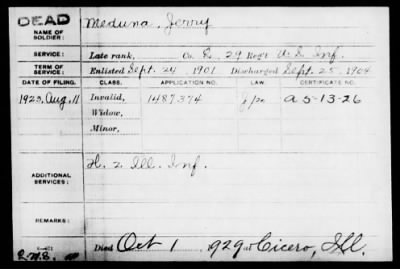 DEAD
NAME OF SOLDIER: Meduna, Jerry
SERVICE: Late rank, Co. E, 29 Reg't U.S. Inf.
TERM OF SERVICE: Enlisted Sept. 24, 1901 Discharged Sept. 25, 1904
DATE OF FILING. CLASS. APPLICATION NO. LAW. CERTIFICATE NO.
1923, Aug. 11 Invalid, 1487374 A 5-13-26
Widow,
Minor,
ADDITIONAL SERVICES: H. 2 Ill. Inf.
REMARKS:
Died Oct 1, 1929 at Cicero, Ill.